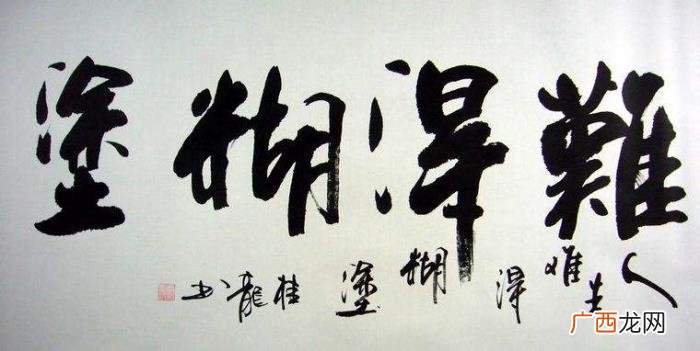 難得糊塗
人生难得糊塗 桂龍书
广西龙网